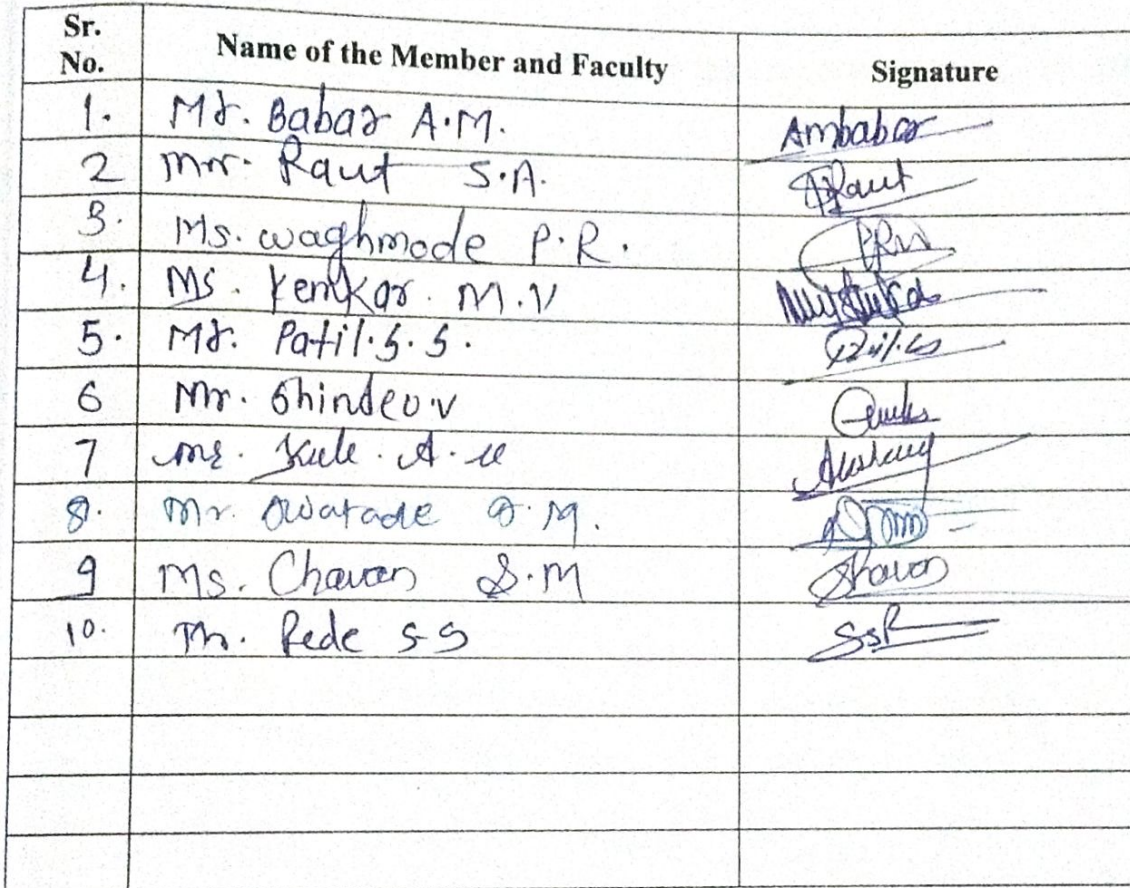 Sr. No. Name of the Member and Faculty Signature
1. Mr. Babar A.M. Ambabar
2 Mr. Raut S.A. Raut
3. Ms. Waghmode P.R. PRW
4. Ms. Kenkar M.V
5. Mr. Patil.S.S.
6 Mr. Shinde
7 Kale A.
8. Mr. Owatade .M.
9 Ms. Chavan S.M Chavan
10. Mr. Rede SS SSR